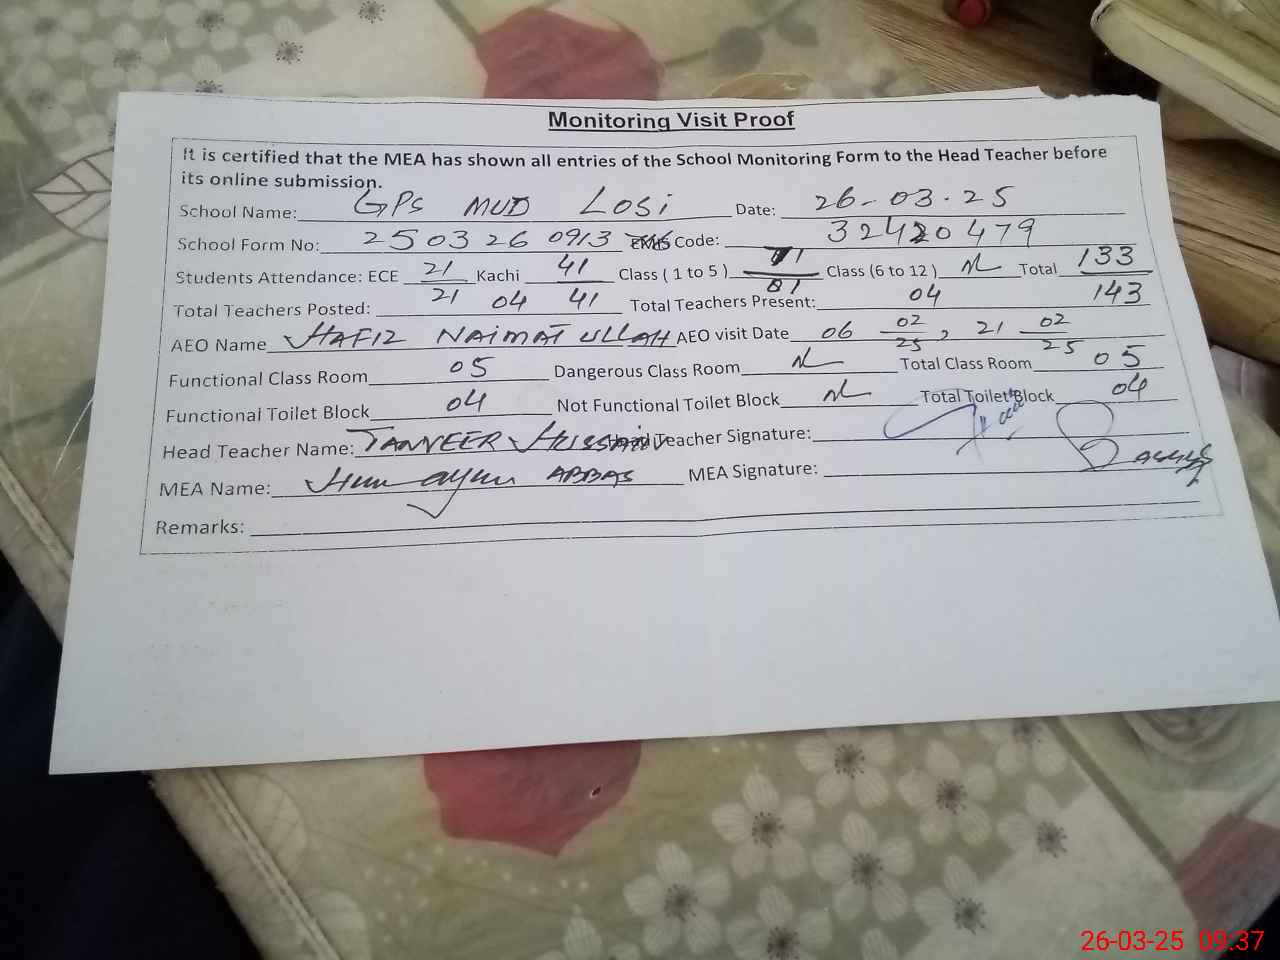 Monitoring Visit Proof
It is certified that the MEA has shown all entries of the School Monitoring Form to the Head Teacher before
its online submission.
School Name: GPS MUD LOSi Date: 26-03.25
School Form No: 25032609​13 EMIS Code: 32420479
Students Attendance: ECE 21/21 Kachi 41/41 Class ( 1 to 5 ) 71/81 Class (6 to 12 ) NL Total 133/143
Total Teachers Posted: 04 Total Teachers Present: 04
AEO Name HAFIZ NAIMAT ULLAH AEO visit Date 06 02/25, 21 02/25
Functional Class Room 05 Dangerous Class Room NL Total Class Room 05
Functional Toilet Block 04 Not Functional Toilet Block NL Total Toilet Block 04
Head Teacher Name: TANVEER HUSSAIN Head Teacher Signature:
MEA Name: Humayun ABBAS MEA Signature:
Remarks:
26-03-25 09:37